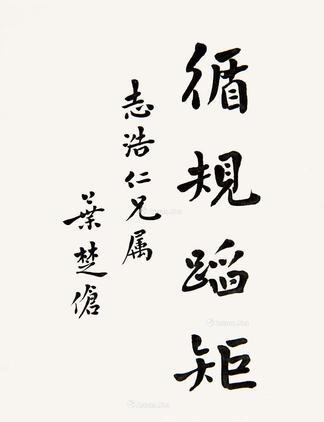 循規蹈矩
志浩仁兄属
葉楚傖